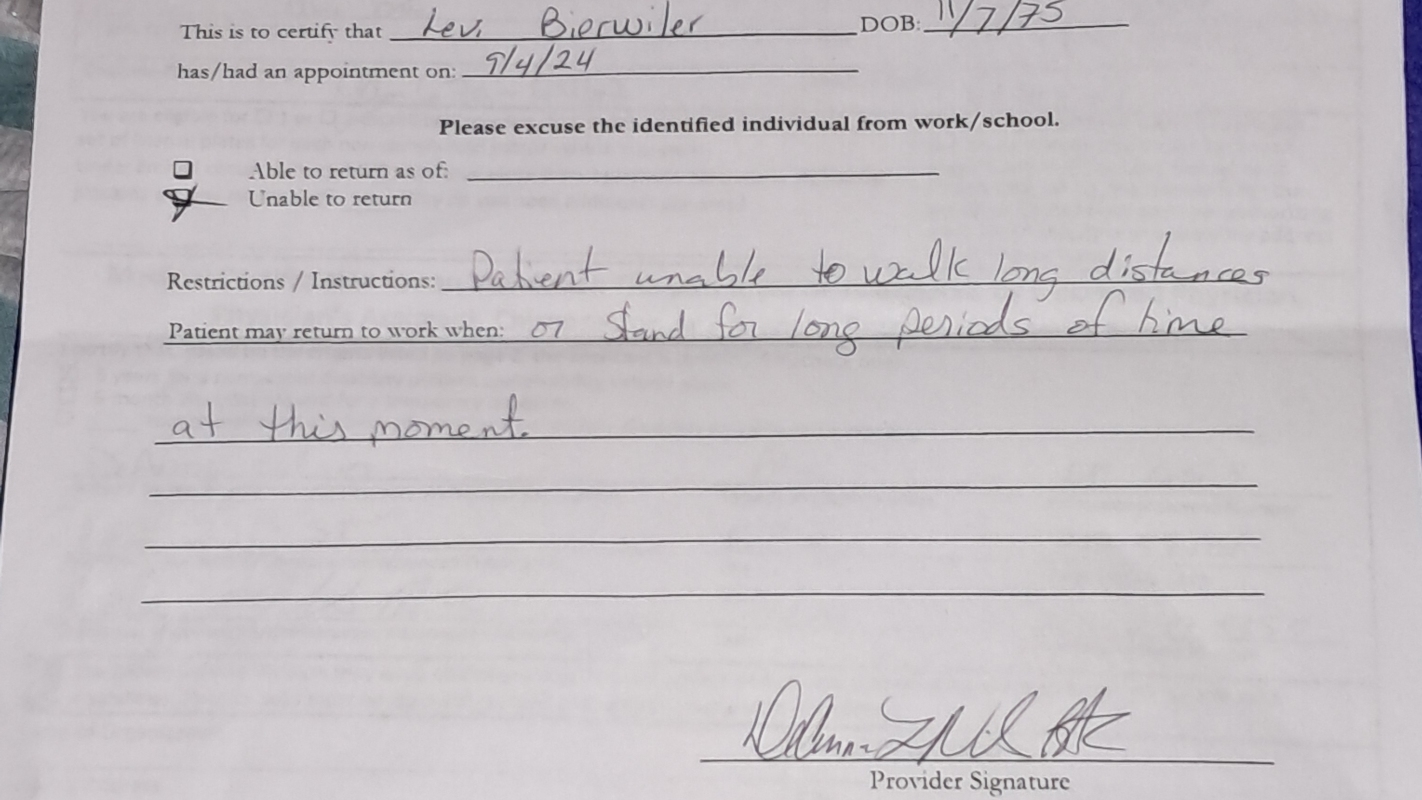 This is to certify that Levi Bierwiler DOB: 11/7/75
has/had an appointment on: 9/4/24
Please excuse the identified individual from work/school.
Able to return as of:
Unable to return
Restrictions / Instructions: Patient unable to walk long distances
Patient may return to work when: or stand for long periods of time
at this moment.
Provider Signature